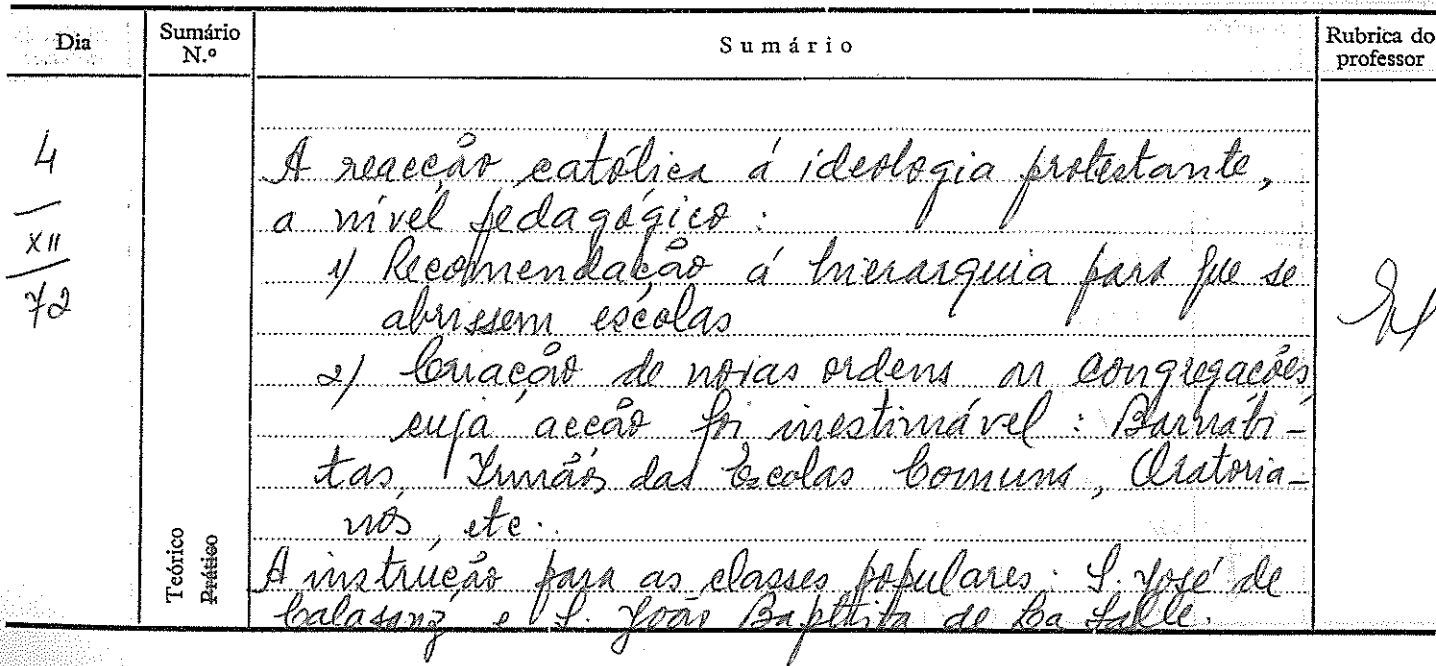 Dia
Sumário N.º
Sumário
Rubrica do professor
4
XII
72
A reacção católica á ideologia protestante,
a nível pedagógico:
1) Recomendação á hierarquia para que se
abrissem escolas
2) Criação de novas ordens ou congregações
cuja acção foi inestimável: Barnabi-
tas, Irmãos das Escolas Comuns, Oratoria-
nos, etc.
Teórico
Prático
A instrução para as classes populares: S. José de
Calasanz e S. João Baptista de La Salle.